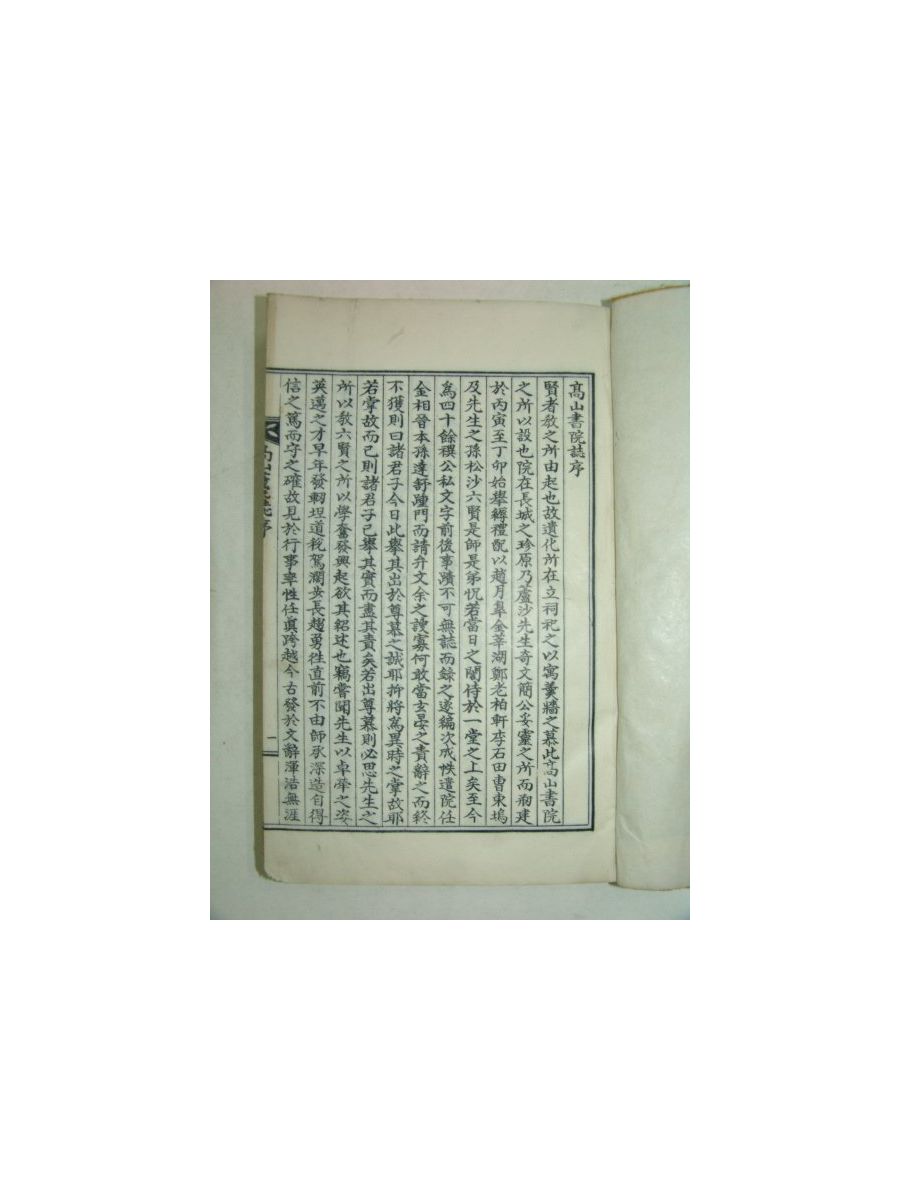 高山書院誌序
賢者敎之所由起也故遺化所在立祠祀之以寓羹墻之慕此高山書院
之所以設也院在長城之珍原乃蘆沙先生奇文簡公妥靈之所而刱建
於丙寅至丁卯始擧縟禮配以趙月皐金莘湖鄭老柏軒李石田曺東塢
及先生之孫松沙六賢是師是弟怳若當日之誾侍於一堂之上矣至今
爲四十餘禩公私文字前後事蹟不可無誌而錄之遂編次成帙遣院任
金相晉本孫達舒踵門而請弁文余之謏寡何敢當玄晏之責辭之而終
不獲則曰諸君子今日此擧其出於尊慕之誠耶抑將爲異時之掌故耶
若掌故而已則諸君子已擧其實而盡其責矣若出尊慕則必思先生之
所以敎六賢之所以學奮發興起欲其紹述也竊嘗聞先生以卓犖之姿
英邁之才早年發軔坦道稅駕濶步長趨勇往直前不由師承深造自得
信之篤而守之確故見於行事率性任眞跨越今古發於文辭渾浩無涯
序
一